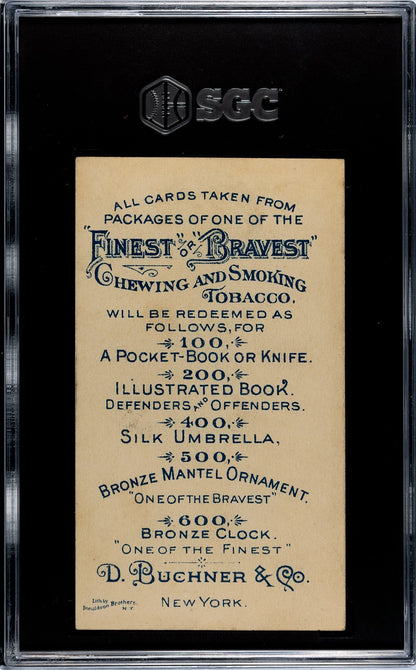 SGC
ALL CARDS TAKEN FROM
PACKAGES OF ONE OF THE
"FINEST" OR "BRAVEST"
CHEWING AND SMOKING
TOBACCO,
WILL BE REDEEMED AS
FOLLOWS, FOR
100,
A POCKET-BOOK OR KNIFE.
200,
ILLUSTRATED BOOK.
DEFENDERS AND OFFENDERS.
400,
SILK UMBRELLA,
500,
BRONZE MANTEL ORNAMENT.
"ONE OF THE BRAVEST"
600,
BRONZE CLOCK.
"ONE OF THE FINEST"
D. BUCHNER & CO.
Lith by
Donaldson Brothers,
N.Y.
NEW YORK.